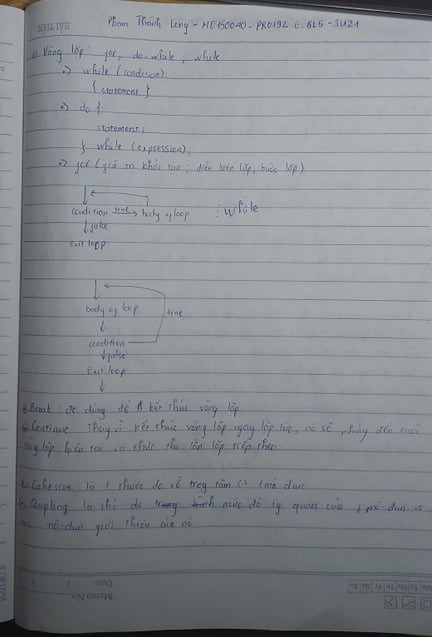 Phạm Thành Long - HE150040 - PRO192 E BL5 - SU21
HẢI TIẾN
Vòng lặp: for, do-while, while
=> while (condition)
{ statement }
=> do {
statement;
} while (expression);
=> for (giá trị khởi tạo; điều kiện lặp, bước lặp)
condition true body of loop : while
false
Exit loop
body of loop true
condition
false
Exit loop
Break: đc dùng để kết thúc vòng lặp
Continue: Thay vì kết thúc vòng lặp ngay lập tức, nó sẽ nhảy đến cuối
vòng lặp hiện tại và thực thi lần lặp tiếp theo
Cohesion: là 1 thước đo về trọng tâm 1 mô đun
Coupling là thể đo mức độ tg quan của 1 mô-đun vs
các mô-đun giới thiệu của nó
Memo No.
Date / /
Mo Tu We Th Fr Sa Su